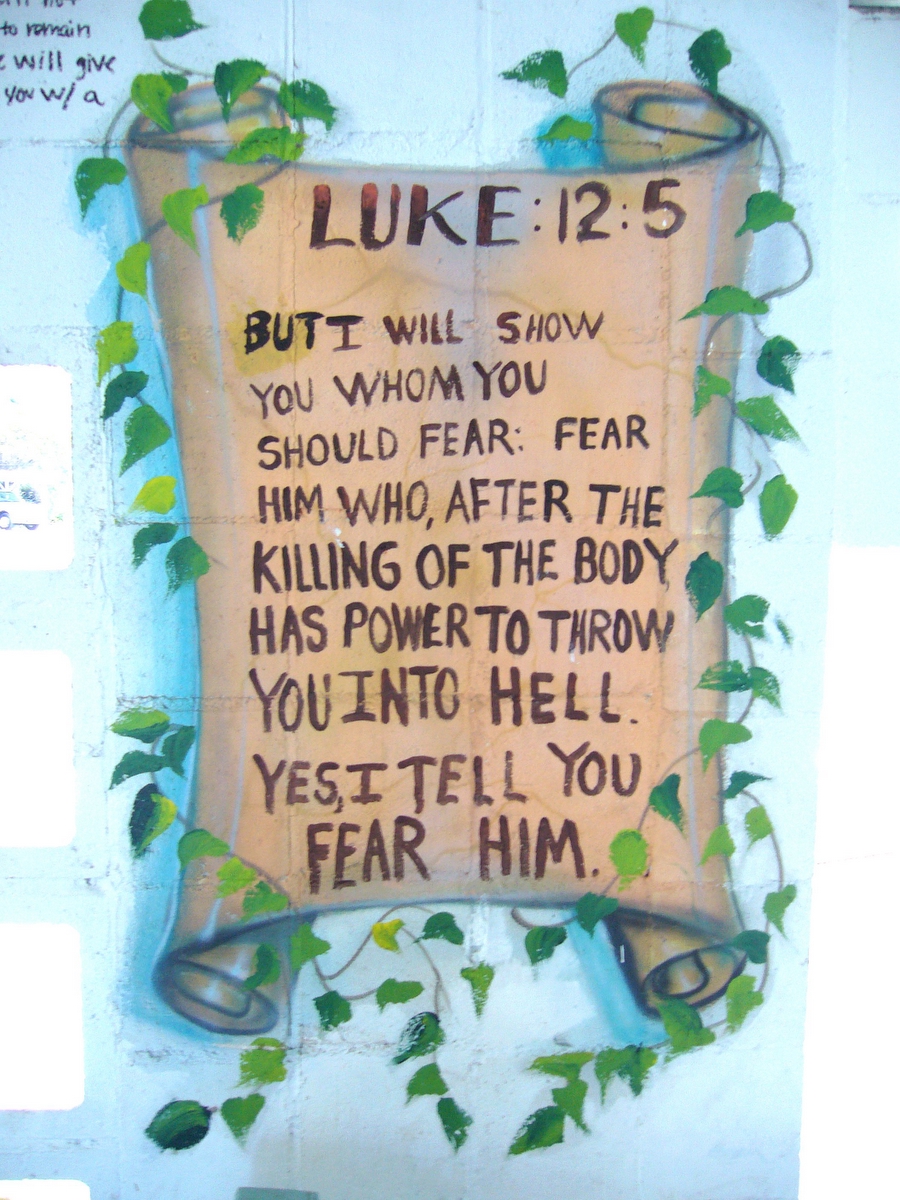 to remain
will give
you w/ a
LUKE:12:5
BUT I WILL SHOW
YOU WHOM YOU
SHOULD FEAR: FEAR
HIM WHO, AFTER THE
KILLING OF THE BODY
HAS POWER TO THROW
YOU INTO HELL.
YES, I TELL YOU
FEAR HIM.